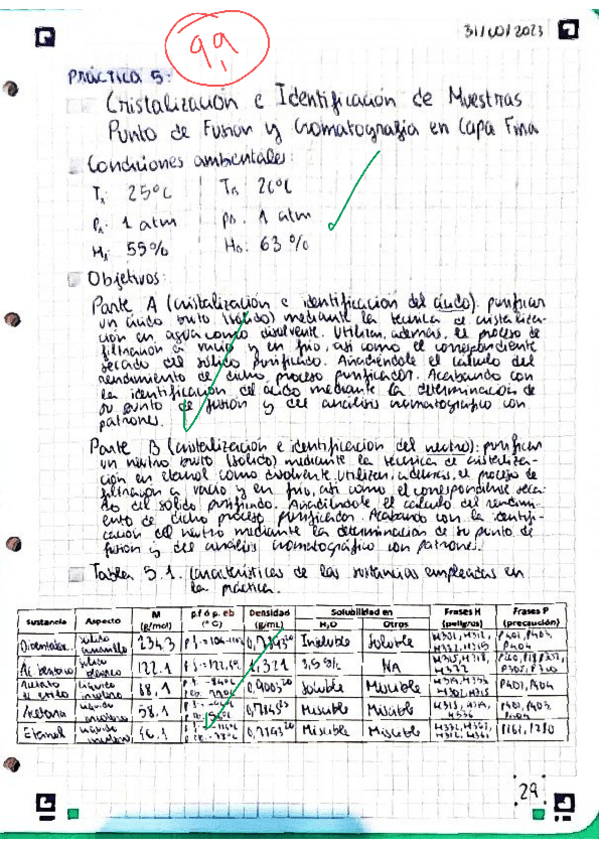 9,9
31/10/2023
PRÁCTICA 5:
Cristalización e Identificación de Muestras
Punto de Fusión y Cromatografía en Capa Fina
Condiciones ambientales:
T 25ºC T 26ºC
P 1 atm P 1 atm
H 55% H 63%
Objetivos:
Parte A (cristalización e identificación del ácido): purificar
un ácido bruto (sólido) mediante la técnica de cristaliza-
ción en agua como disolvente. Utilizar, además, el proceso de
filtración a vacío y en frío, así como el correspondiente
secado del sólido purificado. Añadiéndole el cálculo del
rendimiento de dicho proceso purificador. Acabando con
la identificación del ácido mediante la determinación de
su punto de fusión y del análisis cromatográfico con
patrones.
Parte B (cristalización e identificación del neutro): purificar
un neutro bruto (sólido) mediante la técnica de cristaliza-
ción en etanol como disolvente. Utilizar, además, el proceso de
filtración a vacío y en frío, así como el correspondiente seca-
do del sólido purificado. Añadiéndole el cálculo del rendimi-
ento de dicho proceso purificador. Acabando con la identifi-
cación del neutro mediante la determinación de su punto de
fusión y del análisis cromatográfico con patrones.
Tabla 5.1. Características de las sustancias empleadas en
la práctica.
Sustancia Aspecto M (g/mol) p.f ó p. eb (ºC) Densidad (g/mL) Solubilidad en H₂O Otros Frases H (peligros) Frases P (precaución)
sólido amarillo 234.3 Insoluble Soluble
sólido blanco 122.1 1,321 NA
Acetato de etilo líquido incoloro 88,1 Soluble Miscible P401, P404
Acetona líquido incoloro 58.1 Miscible Miscible
Etanol líquido incoloro 46.1 Miscible Miscible
29